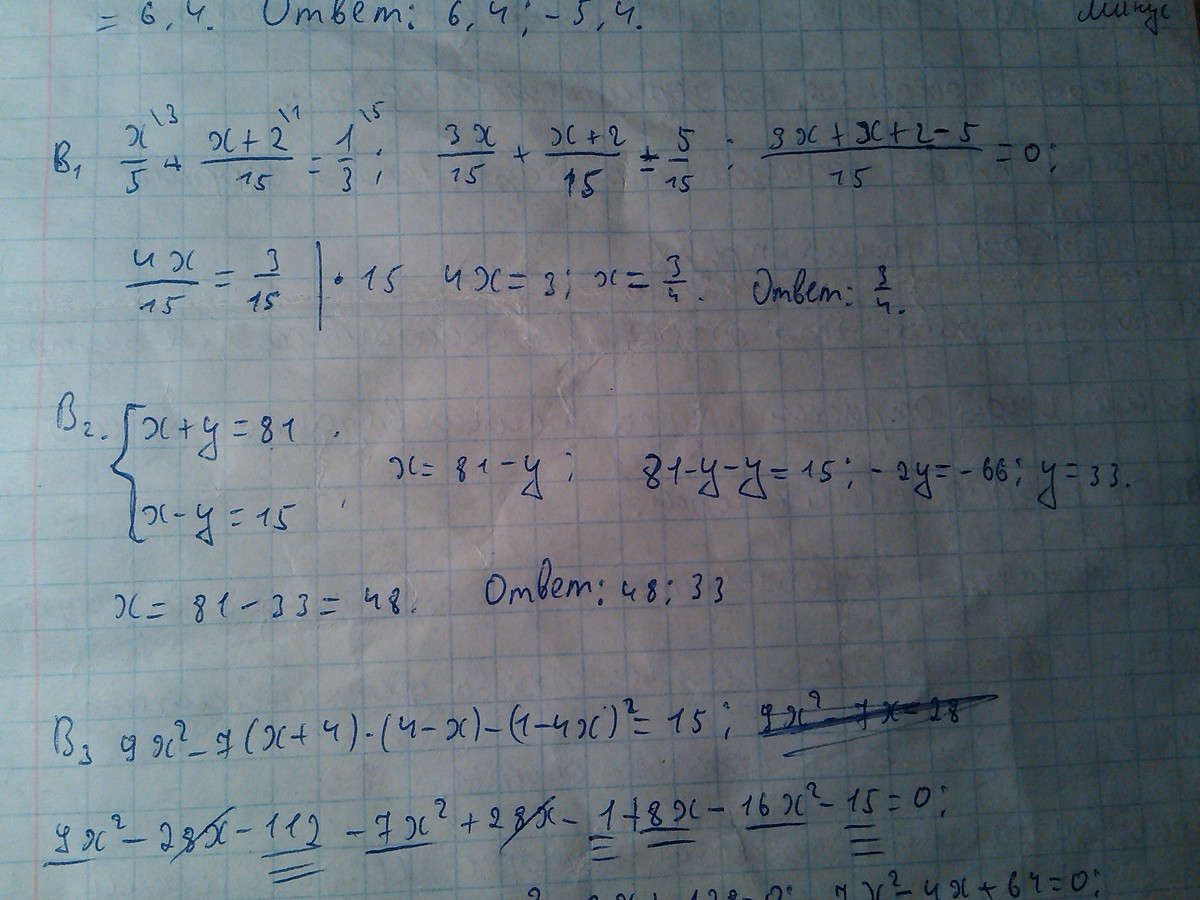 = 6,4. Ответ: 6,4; -5,4. минус
В₁ x\3/5 + x+2\1/15 = 1\5/3; 3x/15 + x+2/15 = 5/15; 3x+x+2-5/15 = 0;
4x/15 = 3/15 | · 15 4x = 3; x = 3/4. Ответ: 3/4.
В₂. { x+y = 81
x = 81-y; 81-y-y = 15; -2y = -66; y = 33.
x-y = 15
x = 81-33 = 48. Ответ: 48; 33
В₃ 9x²-7(x+4)·(4-x)-(1-4x)² = 15; 9x²-7x-28
9x²-28x-112-7x²+28x-1+8x-16x²-15=0;
7x²-4x+64=0;